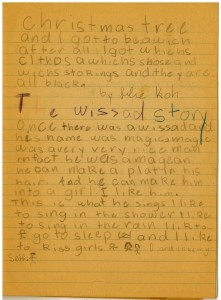 christmas tree
and I got to beawich
after all. I got whichs
clthos awhichs shose and
wichs storings and they are
all black.
by
The wissad story
Once there was a wissad and
his name was magicamagic
was avery very nice man
infact he was amagean
he can make a platin his
hair. And he can make him
into a girl I like him.
This is what he sings I like
to sing in the shower I like
to sing in the rain I like
to go to sleep and I like
to kiss girls